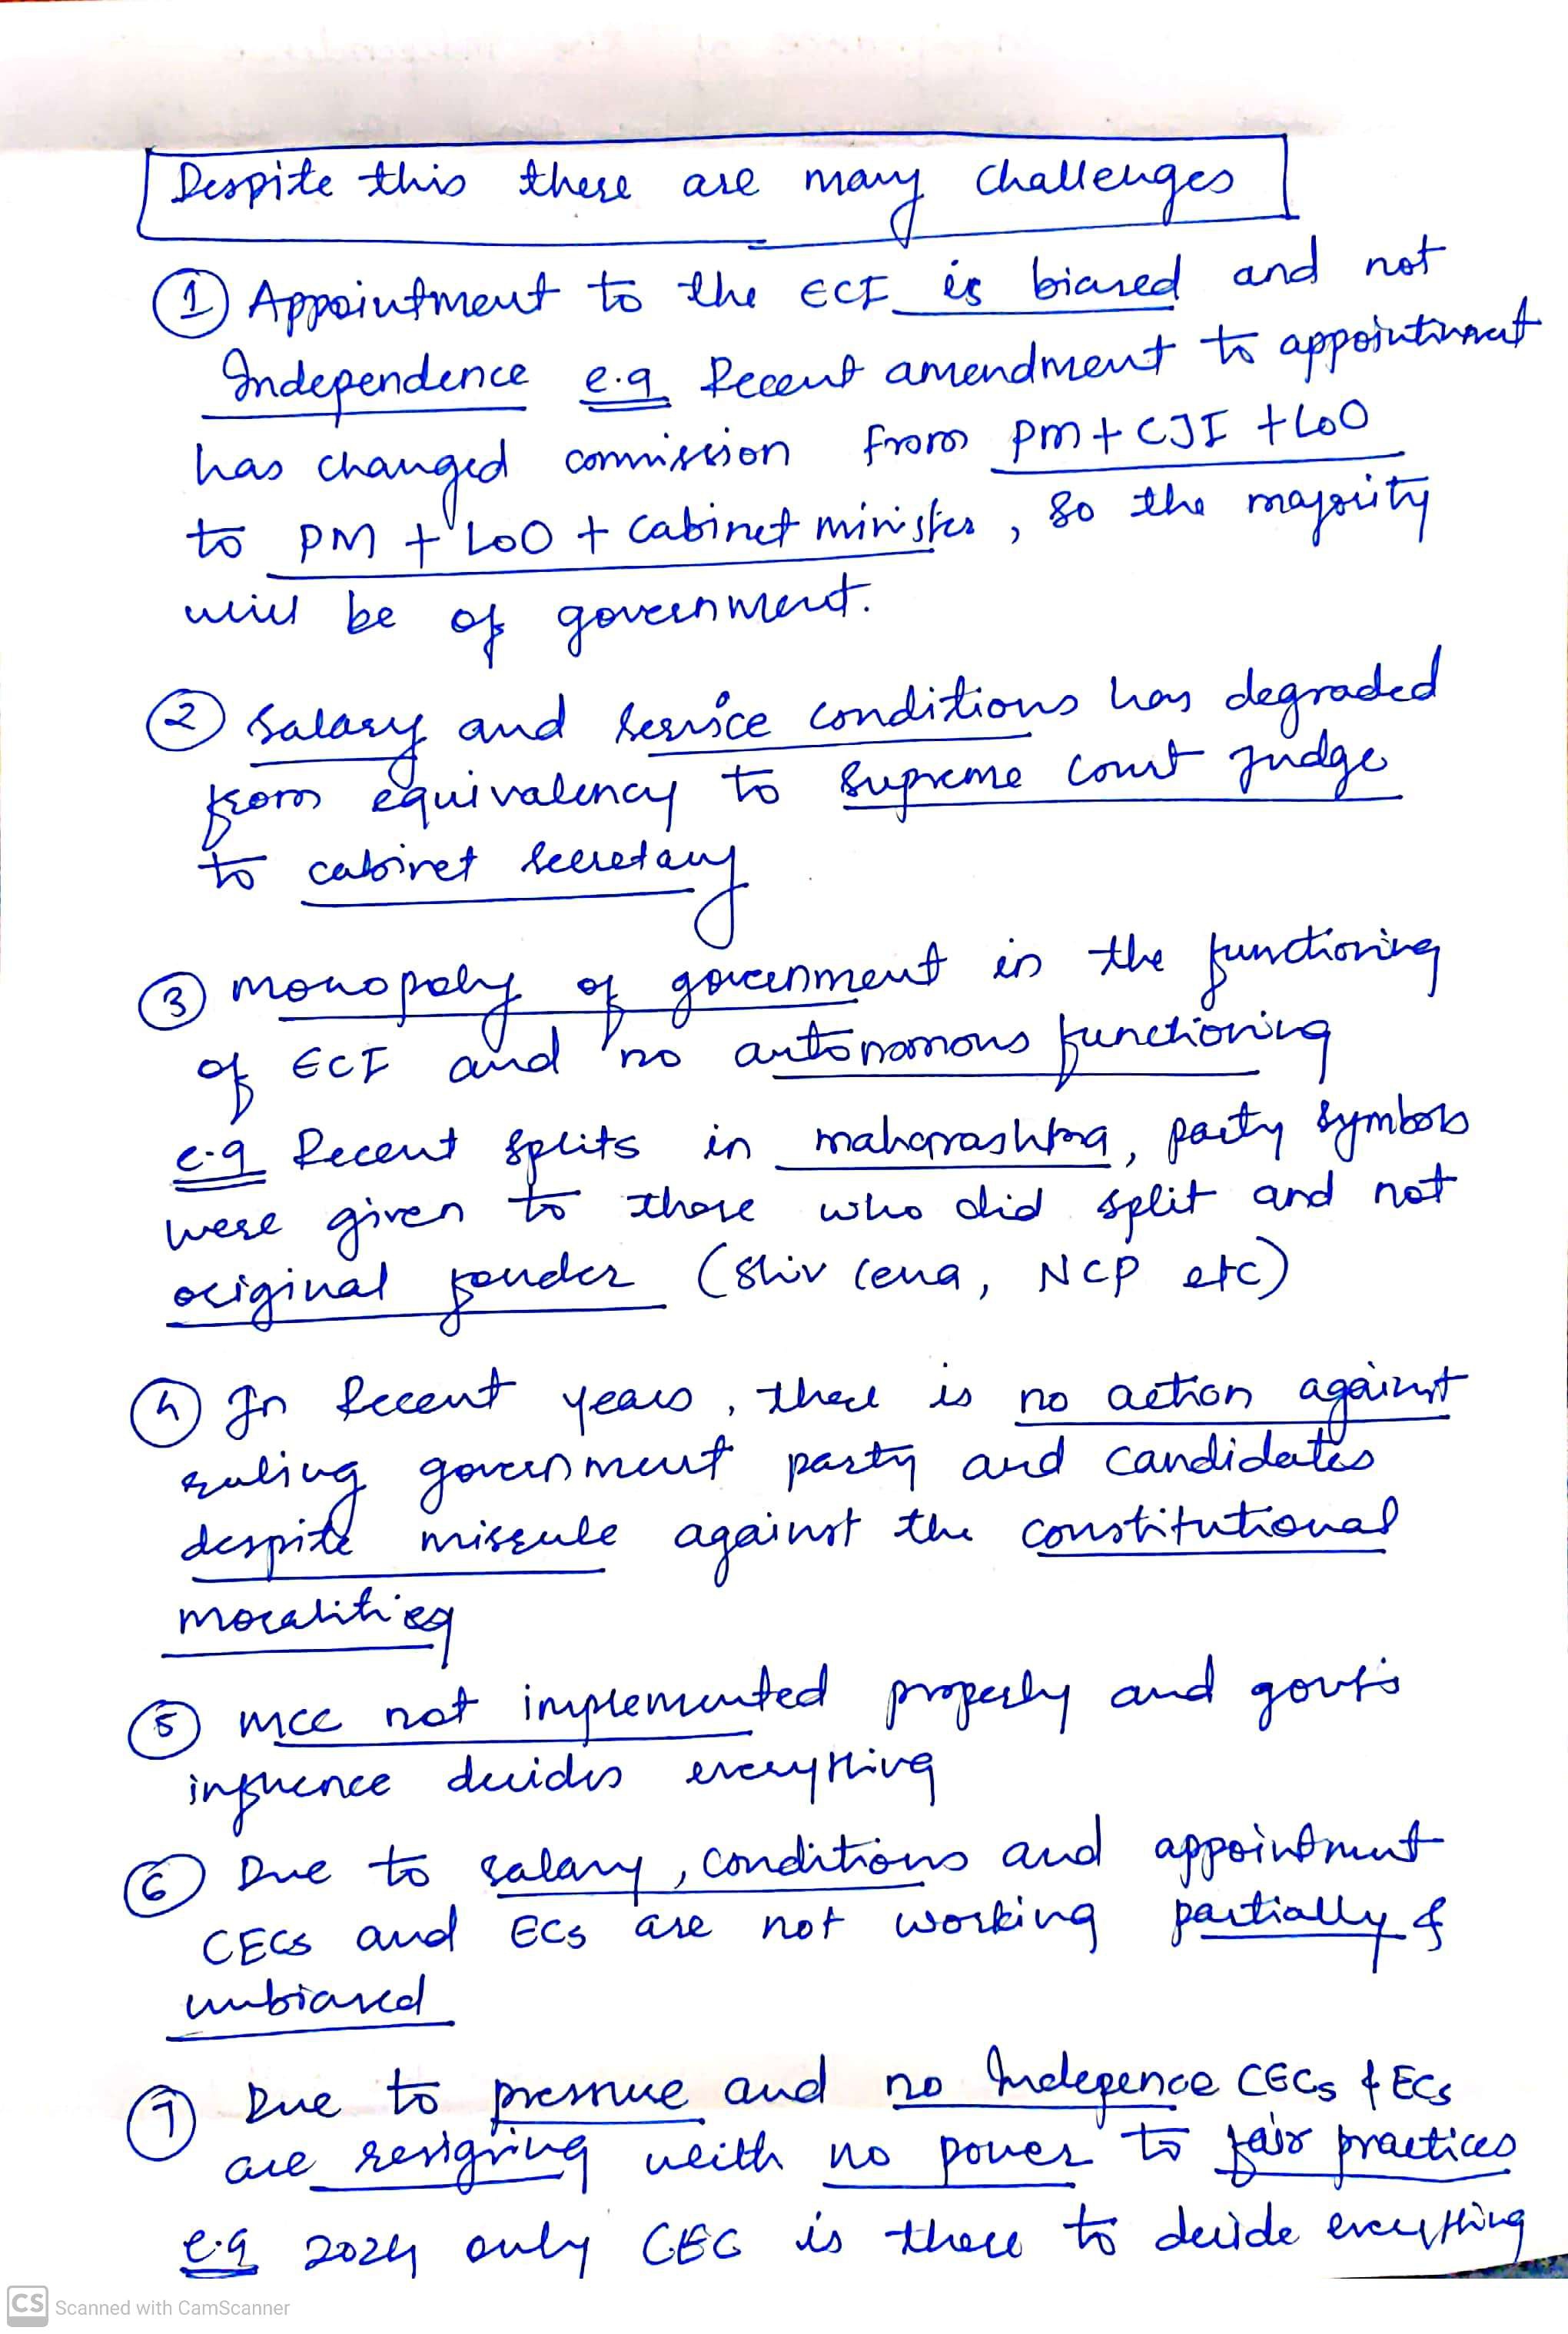 Despite this there are many challenges
① Appointment to the ECI is biased and not
Independence e.g Recent amendment to appointment
has changed commission from PM + CJI + LoO
to PM + LoO + Cabinet minister, so the majority
will be of government.
② Salary and service conditions has degraded
from equivalency to Supreme Court Judge
to cabinet secretary
③ Monopoly of government in the functioning
of ECI and no autonomous functioning
e.g Recent splits in maharashtra, party symbols
were given to those who did split and not
original founder (Shiv cena, NCP etc)
④ In Recent years, there is no action against
ruling government party and candidates
despite misrule against the constitutional
moralities
⑤ MCC not implemented properly and govt's
influence decides everything
⑥ Due to salary, conditions and appointment
CECs and ECs are not working partially &
unbiased
⑦ Due to pressure and no Indepence CECs & ECs
are resigning with no power to fair practices
e.g 2024 only CEC is there to decide everything
CS Scanned with CamScanner